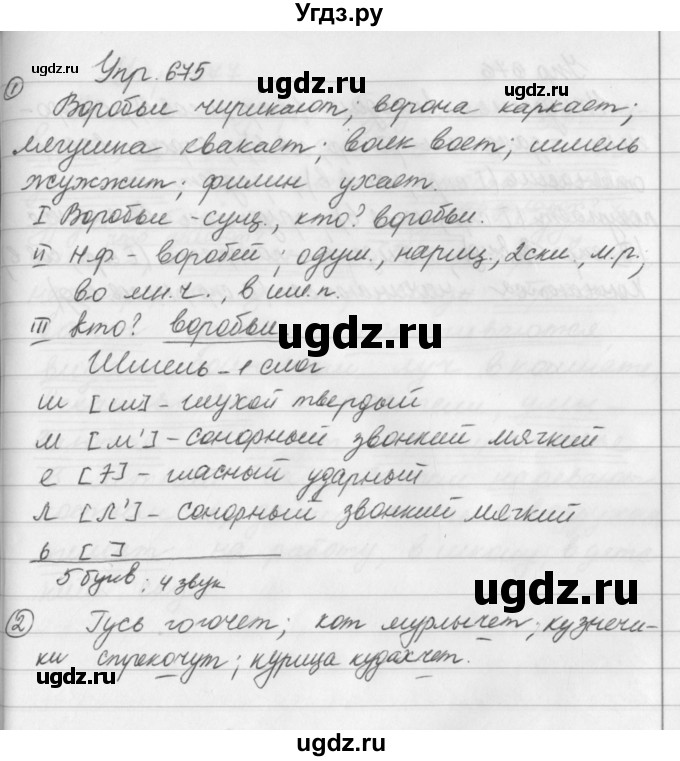 Угдз.ру
ugdz.ru ugdz.ru
Упр. 675
ugdz.ru
① Воробьи чирикают; ворона каркает;
лягушка квакает; волк воет; шмель
жужжит; филин ухает.
I Воробьи - сущ., кто? воробьи.
II Н.ф - воробей, одуш., нариц., 2 скл., м.р.,
во мн.ч., в им.п.
III кто? воробьи
ugdz.ru
Шмель - 1 слог
ш [ш] - глухой твердый
м [м'] - сонорный звонкий мягкий
е [э] - гласный ударный
л [л'] - сонорный звонкий мягкий
ь [ ]
5 букв; 4 звук
ugdz.ru
② Гусь гогочет; кот мурлычет; кузнечи-
ки стрекочут; курица кудахчет.
ugdz.ru ugdz.ru
ugdz.ru